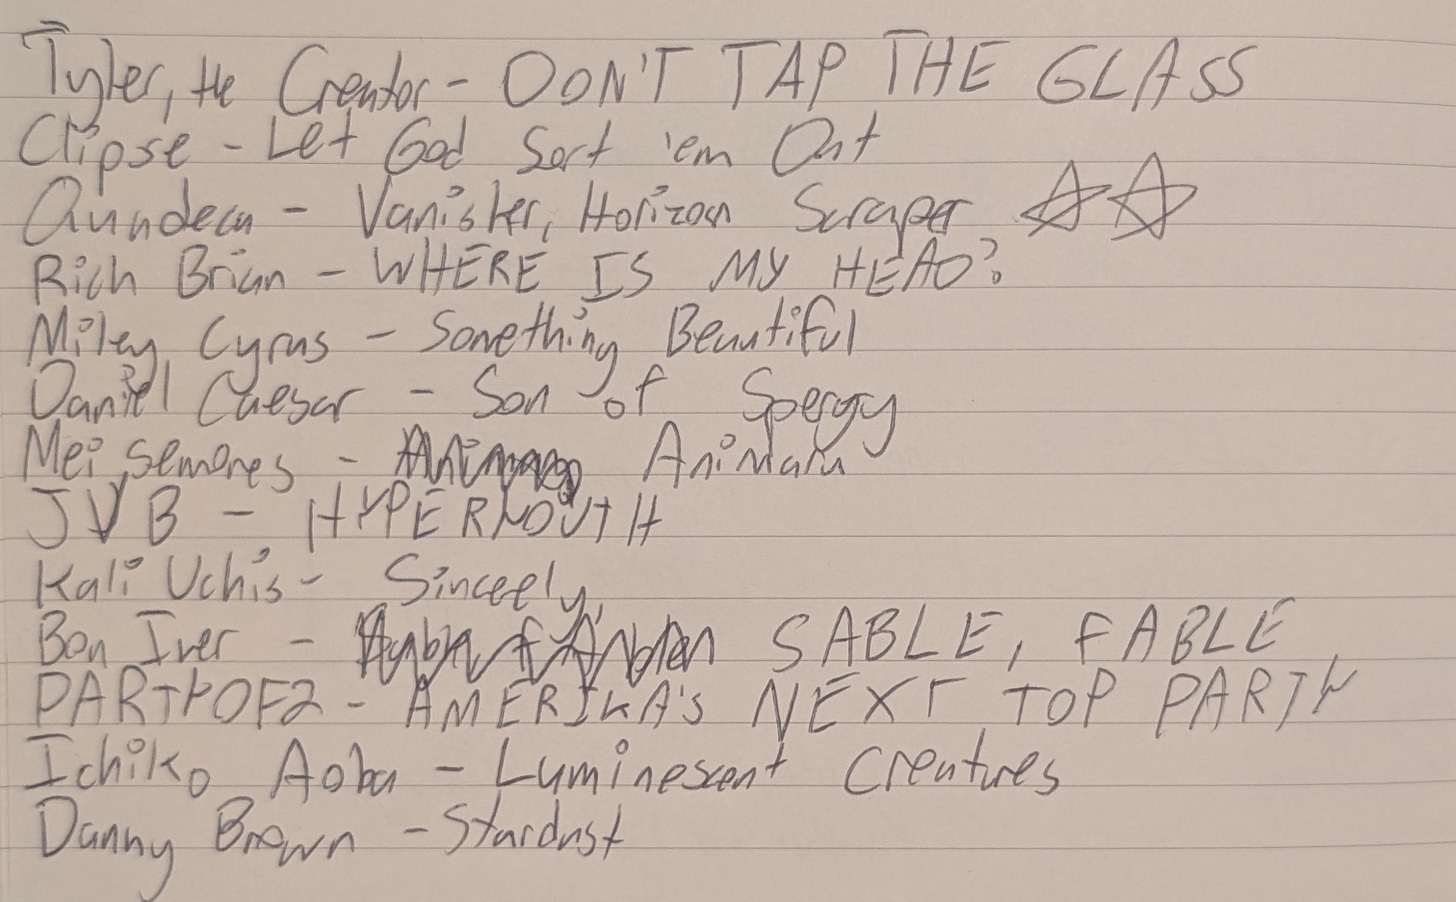 Tyler, the Creator - DON'T TAP THE GLASS
Clipse - Let God Sort 'em Out
Quadeca - Vanisher, Horizon Scraper ☆☆
Rich Brian - WHERE IS MY HEAD?
Miley Cyrus - Something Beautiful
Daniel Caesar - Son of Spergy
Mei Semones - Animaru
JVB - HYPERMOUTH
Kali Uchis - Sinceely,
Bon Iver - SABLE, FABLE
PARTYOF2 - AMERIKA'S NEXT TOP PARTY
Ichiko Aoba - Luminescent Creatures
Danny Brown - Stardust